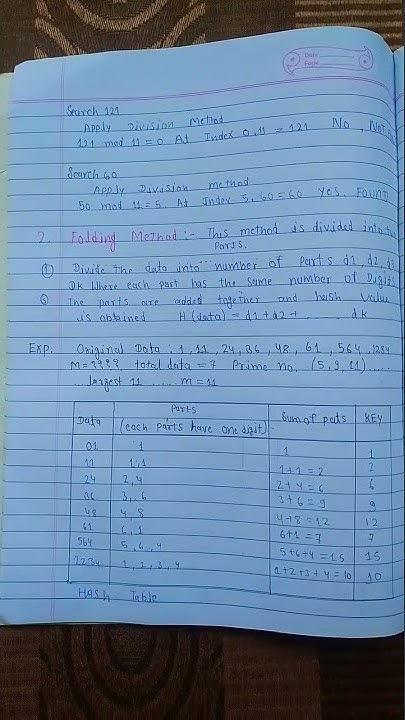 Date
Page
Search 121
Apply Division Method
121 mod 11 = 0 At Index 0, 11 = 121 No, Not
Search 60
Apply Division method
50 mod 11 = 5. At Index 5, 60 = 60 Yes. Found
2. Folding Method:- This method is divided into two
Parts.
① Divide the data into number of Parts d1, d2, d3
Dk where each part has the same number of Digits
② The parts are added together and hash value
is obtained H(data) = d1+d2+ ...... dk
Exp. Original Data: 1, 11, 24, 36, 48, 61, 564, 1234
M = ???? total data = 7 Prime no. (5, 9, 11) .....
largest 11 ...... m = 11
Data Parts (each parts have one digit) Sum of parts KEY
01 1 1 1
11 1,1 1+1 = 2 2
24 2,4 2+4 = 6 6
36 3, 6 3+6 = 9 9
48 4, 8 4+8 = 12 12
61 6, 1 6+1 = 7 7
564 5, 6, 4 5+6+4 = 15 15
1234 1, 2, 3, 4 1+2+3+4 = 10 10
Hash Table